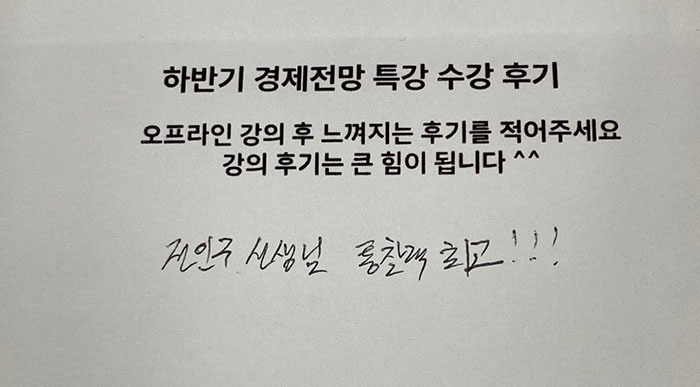 하반기 경제전망 특강 수강 후기
오프라인 강의 후 느껴지는 후기를 적어주세요
강의 후기는 큰 힘이 됩니다 ^^
전인구 선생님 통찰력 최고!!!